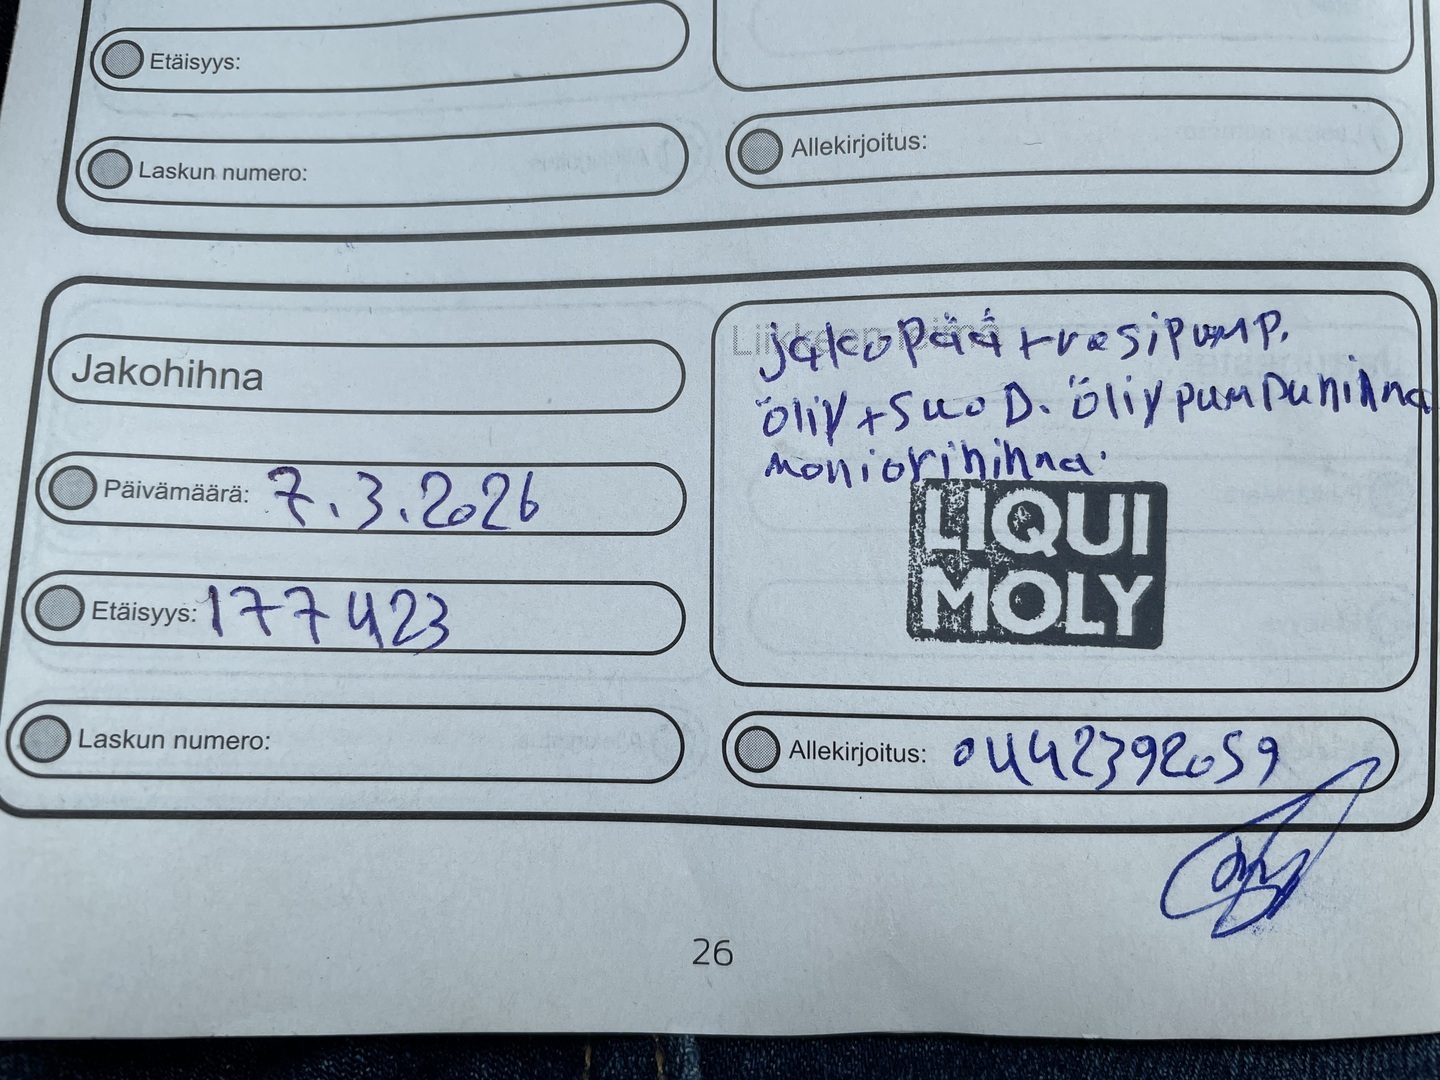 Etäisyys:
Laskun numero:
Allekirjoitus:
Jakohihna
Päivämäärä: 7.3.2026
Etäisyys: 177423
Laskun numero:
Liikkeen nimi
jakopää + vesipump.
öliy + suoD. öliypumpunihna
moniorihihna.
LIQUI
MOLY
Allekirjoitus: 0442392059
26